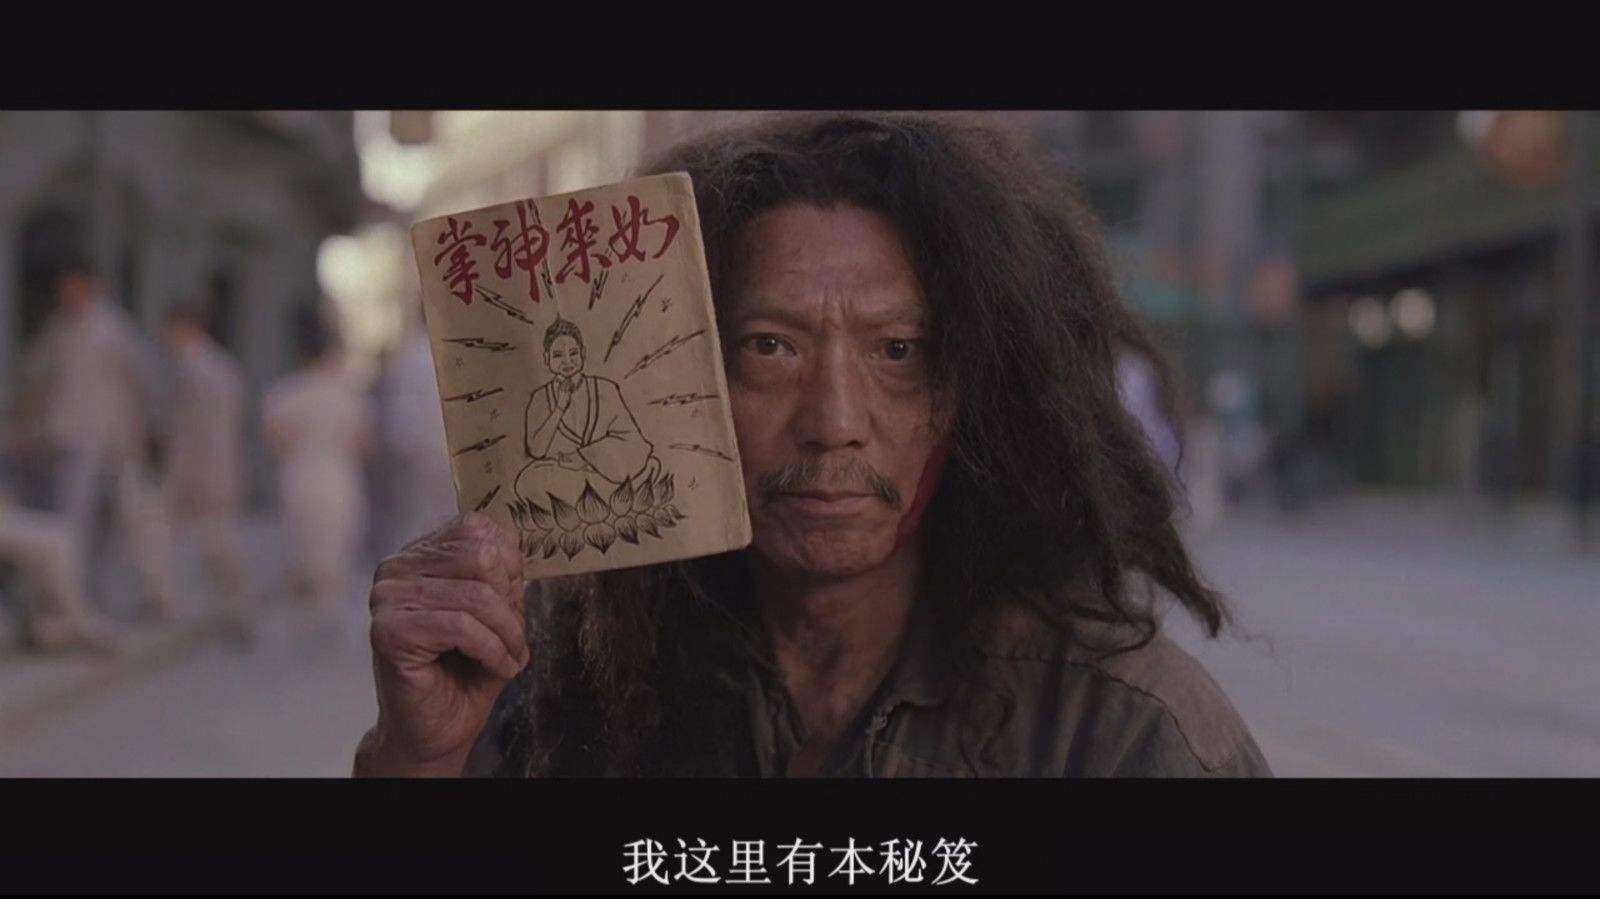 如来神掌
我这里有本秘笈